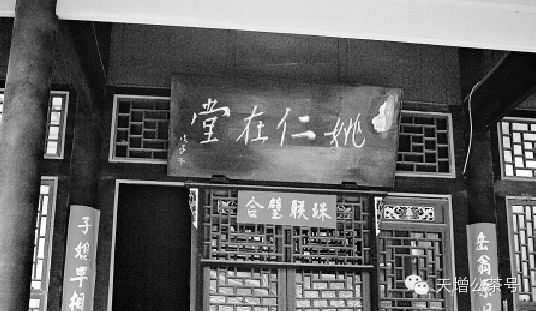 姚仁在堂
珠联璧合
岳翁
子媳早相
天增公茶号